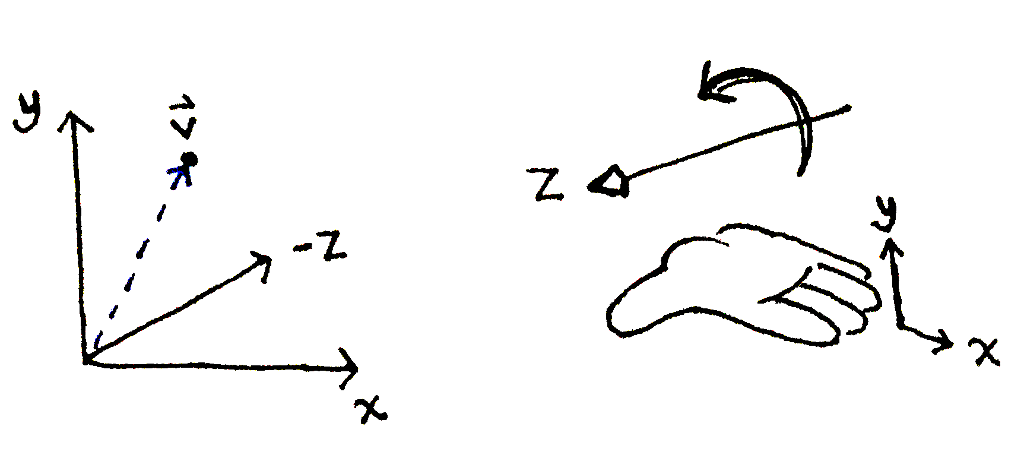 y
v⃗
-z
x
z
y
x